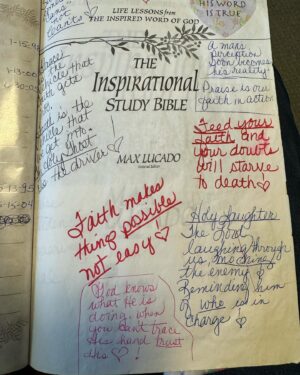 not
tears ♡
LIFE LESSONS from
THE INSPIRED WORD OF GOD
HIS WORD
IS TRUE
1-15-95
1-13-00
that
gets
is the
that
get into.
the driver ♡!
A mans
perception
Soon becomes
his reality!
Praise is our
faith in action
THE
Inspirational
STUDY BIBLE
MAX LUCADO
General Editor
Feed your
faith and
your doubts
will starve
to death ♡
5-13-95
5-15-04
Faith makes
things possible
not easy ♡
God knows
what He is
doing. when
you cant trace
His hand trust
His ♡!
Holy Laughter
The Lord
laughing through
us, mocking
the enemy &
Reminding him
of who is in
Charge!